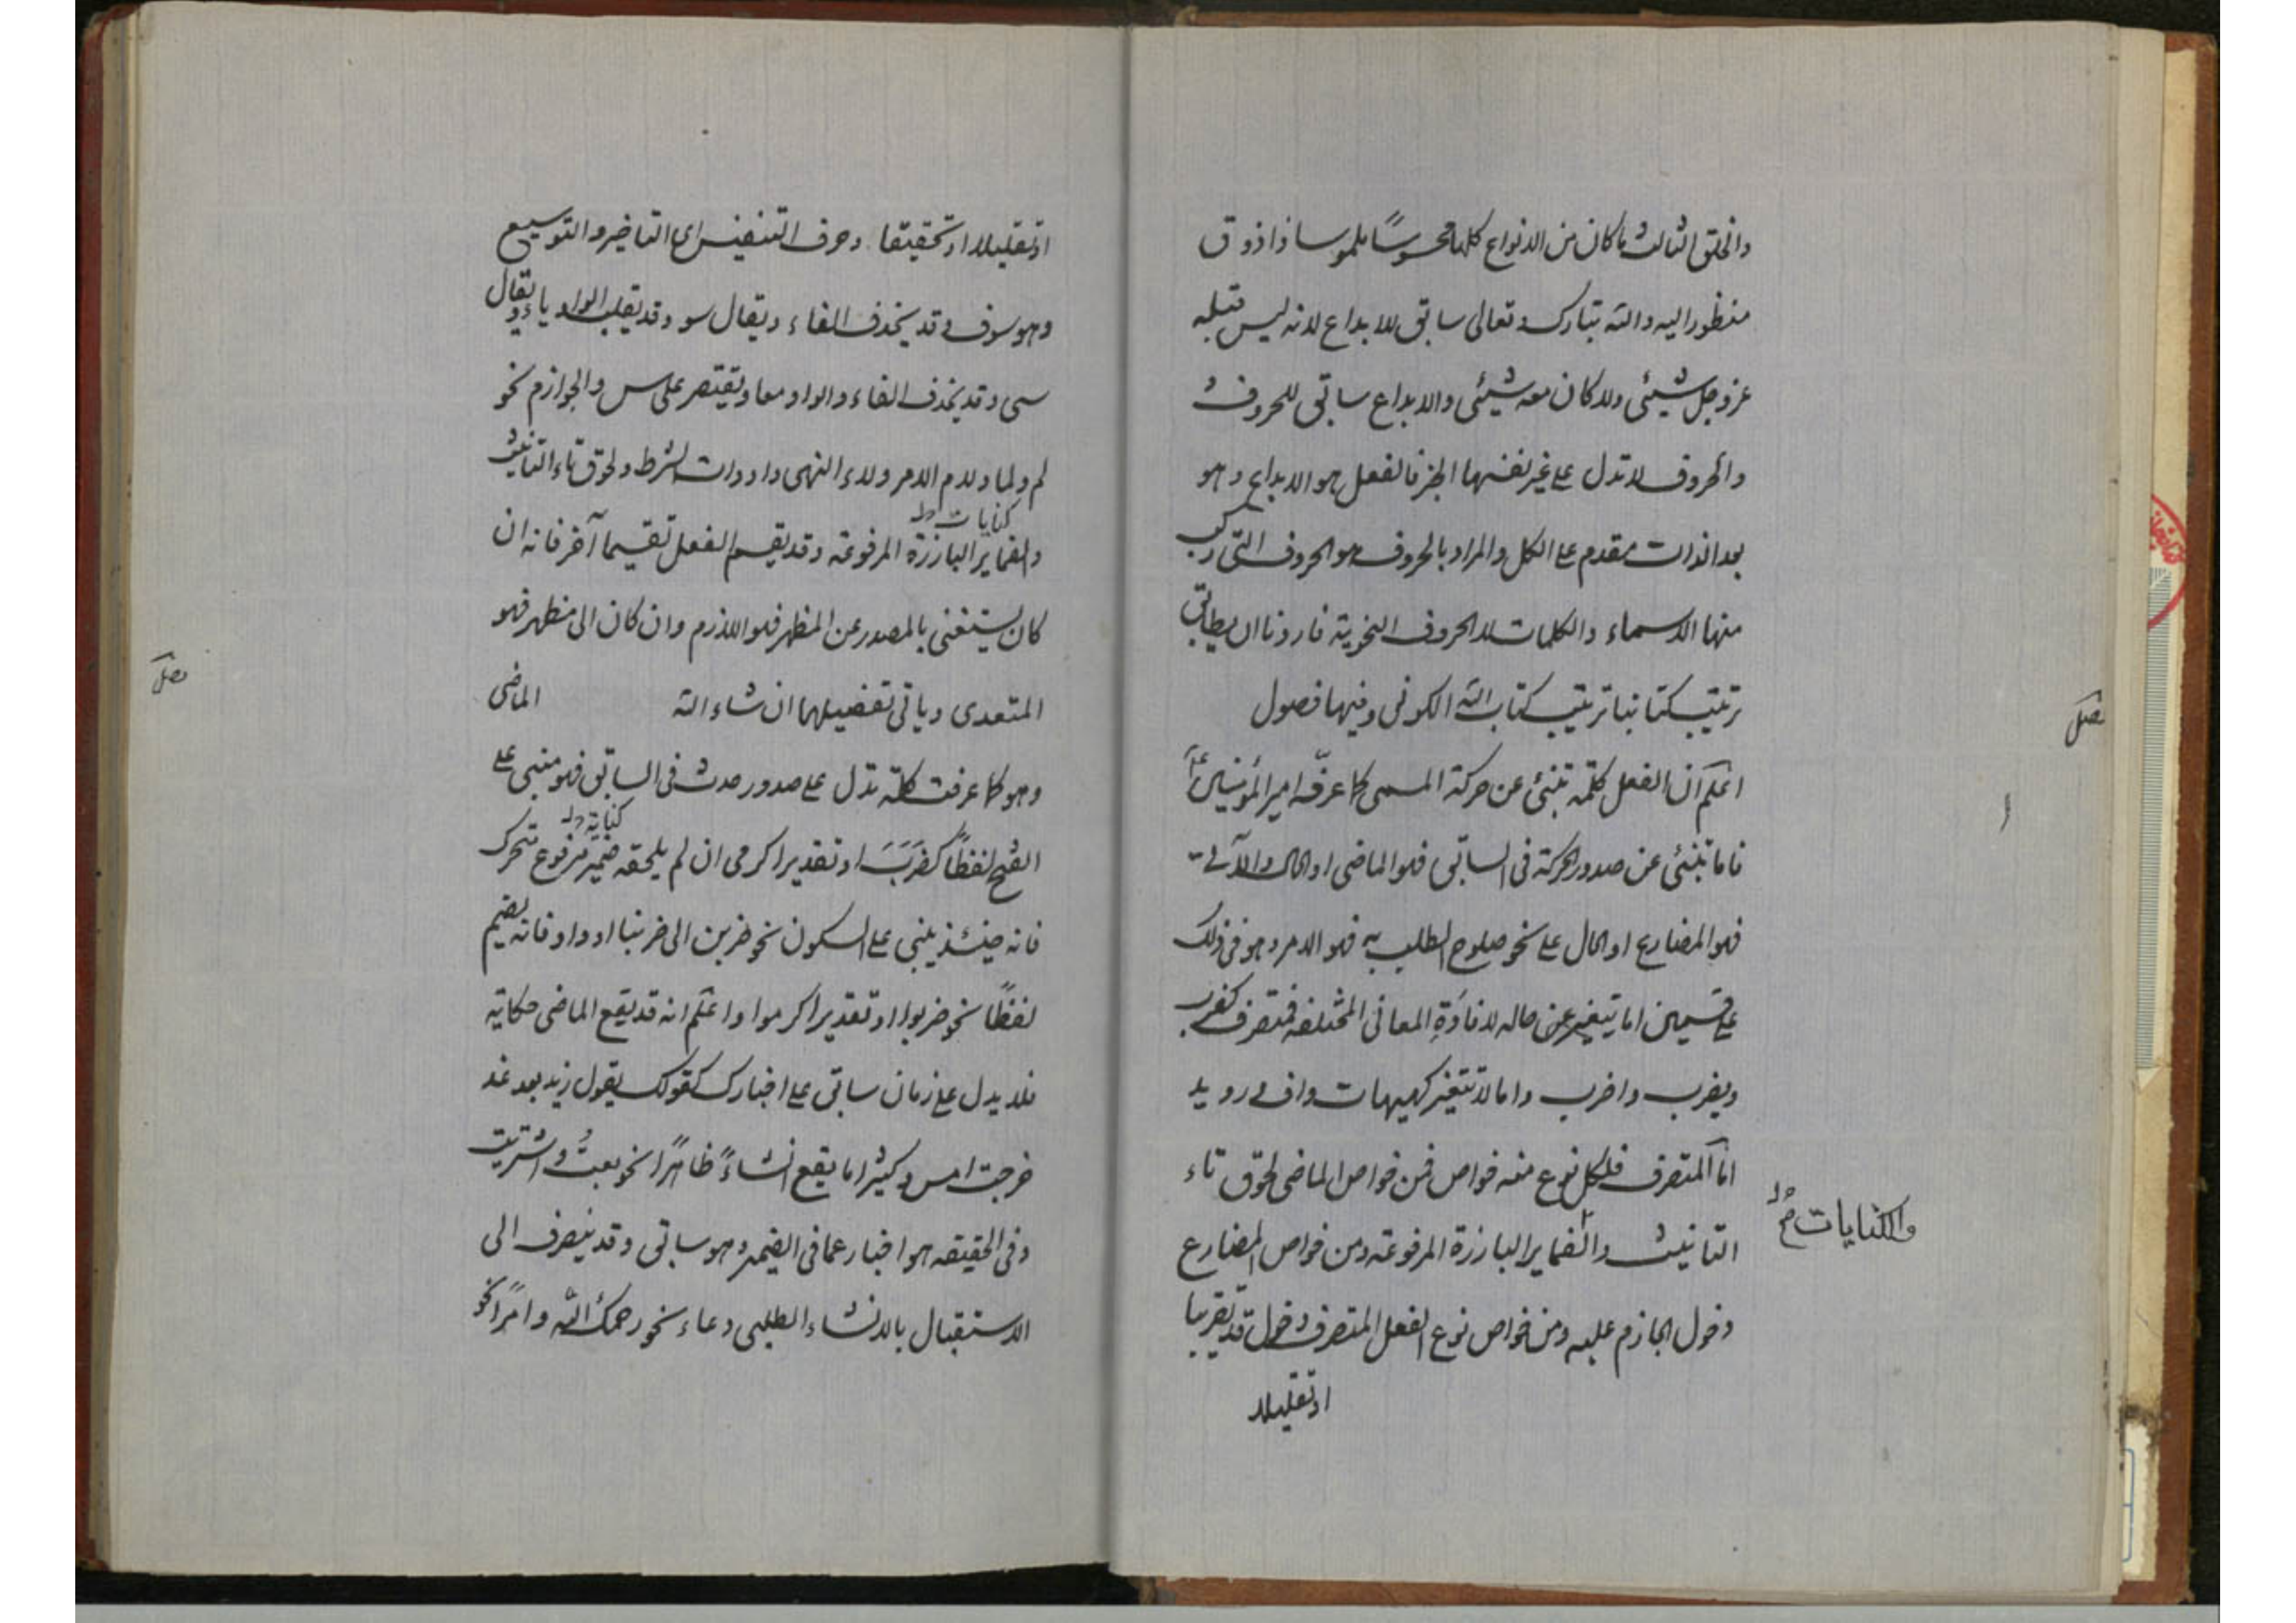 والخلق الثالث ما كان من الانواع كلها محسوسًا ملموسا ذا ذوق
منظورا اليه والله تبارك وتعالى سابق للابداع لانه ليس قبله
عز وجل شيئى ولا كان معه شيئى والابداع سابق للحروف
والحروف لا تدل على غير نفسها الخبر فالفعل هو الابداع وهو
بعد الذات مقدم على الكل والمراد بالحروف هو الحروف التى ركب
منها الاسماء والكلمات لا الحروف النحوية فاردنا ان يطابق
ترتيب كتابنا ترتيب كتاب الله الكونى وفيها فصول
فصل
اعلم ان الفعل كلمة تنبئ عن حركة المسمى كما عرفّه امير المؤمنين ع
فاما تنبئ عن صدور الحركة فى السابق فهو الماضى او الحال والآتى
فهو المضارع او الحال على نحو صلوح الطلب به فهو الامر وهو فى ذلك
على قسمين اما يتغير عن حاله لافادة المعانى المختلفه فمتصرف كضرب
ويضرب واضرب واما لا تتغير كهيهات واف رويد
اما المتصرف فلكل نوع منه خواص فمن خواص الماضى لحوق تاء
التانيث والضماير البارزة المرفوعة ومن خواص المضارع
والكنايات
دخول الجازم عليه ومن خواص نوع الفعل المتصرف دخول قد تقريبا
او تقليلا
او تقليلا او تحقيقا وحرف التنفيس اى التاخير والتوسيع
وهو سوف وقد يحذف الفاء ويقال سو وقد يقلب الواو ياء ويقال
سى وقد يحذف الفاء والواو معا ويقتصر على س والجوازم نحو
لم ولما ولام الامر ولاء النهى وادوات الشرط ولحوق تاء التانيث
كنايات
والضماير البارزة المرفوعة وقد يقسم الفعل تقسيما آخر فانه ان
كان يستغنى بالمصدر عن المظهر فهو اللازم وان كان الى مظهر فهو
المتعدى وياتى تفضيلهما ان شاء الله الماضى
فصل
وهو كما عرفت كلمة تدل على صدور حدث فى السابق فهو مبنى على
كناية
الفتح لفظًا كضَرَبَ او تقديرا كرمى ان لم يلحقه ضمير مرفوع متحرك
فانه حينئذ يبنى على السكون نحو ضربن الى ضربنا او واو فانه يضم
لفظًا نحو ضربوا او تقديرا كرموا واعلم انه قد يقع الماضى حكاية
فلا يدل على زمان سابق على اخبارك كقولك يقول زيد بعد غد
خرجت امس وكثيرا ما يقع انشاءً ظاهرًا نحو بعتُ واشتريت
وفى الحقيقه هو اخبار عما فى الضمير وهو سابق وقد ينصرف الى
الاستقبال بالانشاء الطلبى دعاء نحو رحمك الله وامرًا نحو